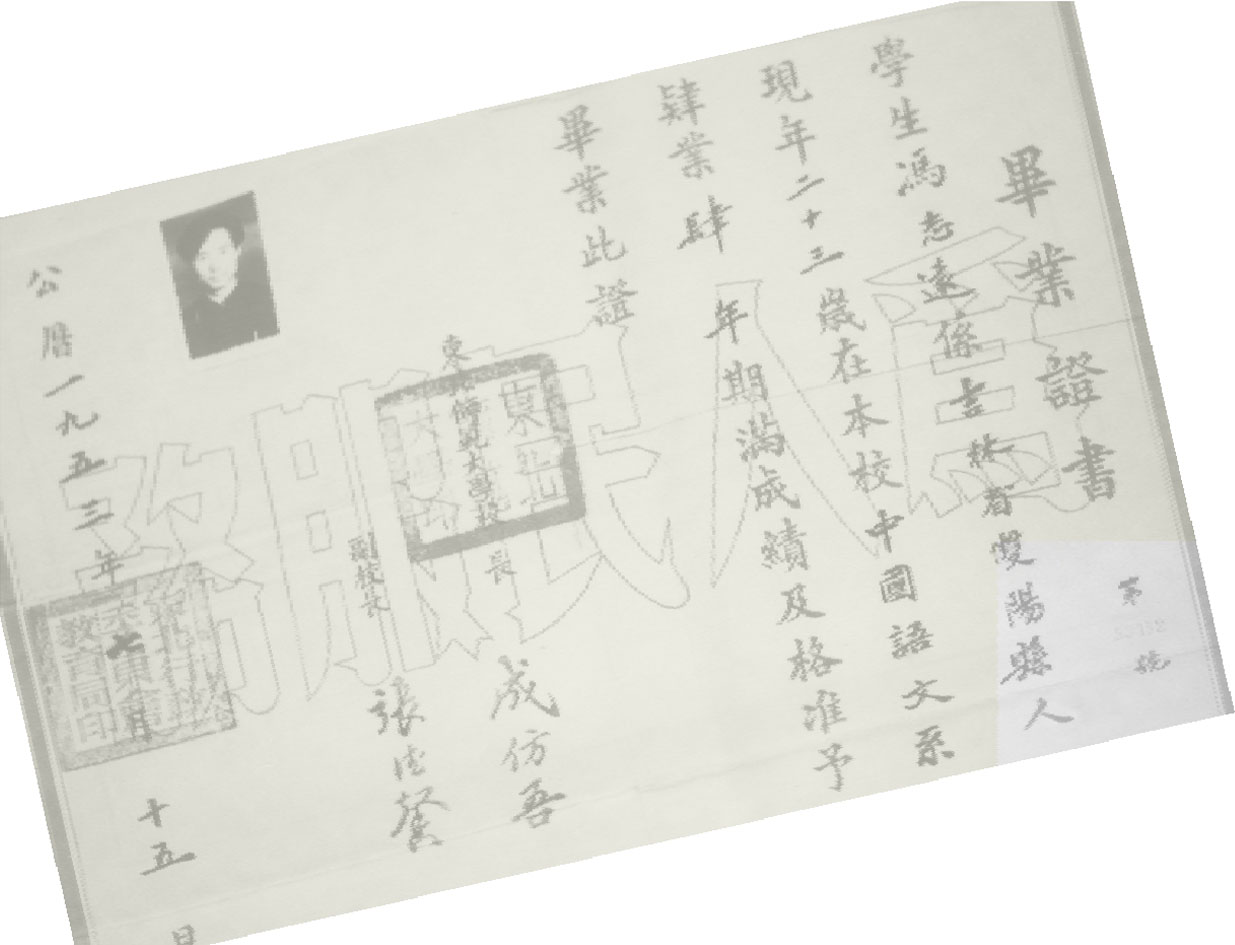 畢業證書
第 號
學生馮志遠係吉林省雙陽縣人
現年二十三歲在本校中國語文系
肄業肆年期滿成績及格准予
畢業此證
東北師範大學校長 成仿吾
副校長 張德馨
公曆一九五三年七月十五日
為人民服務